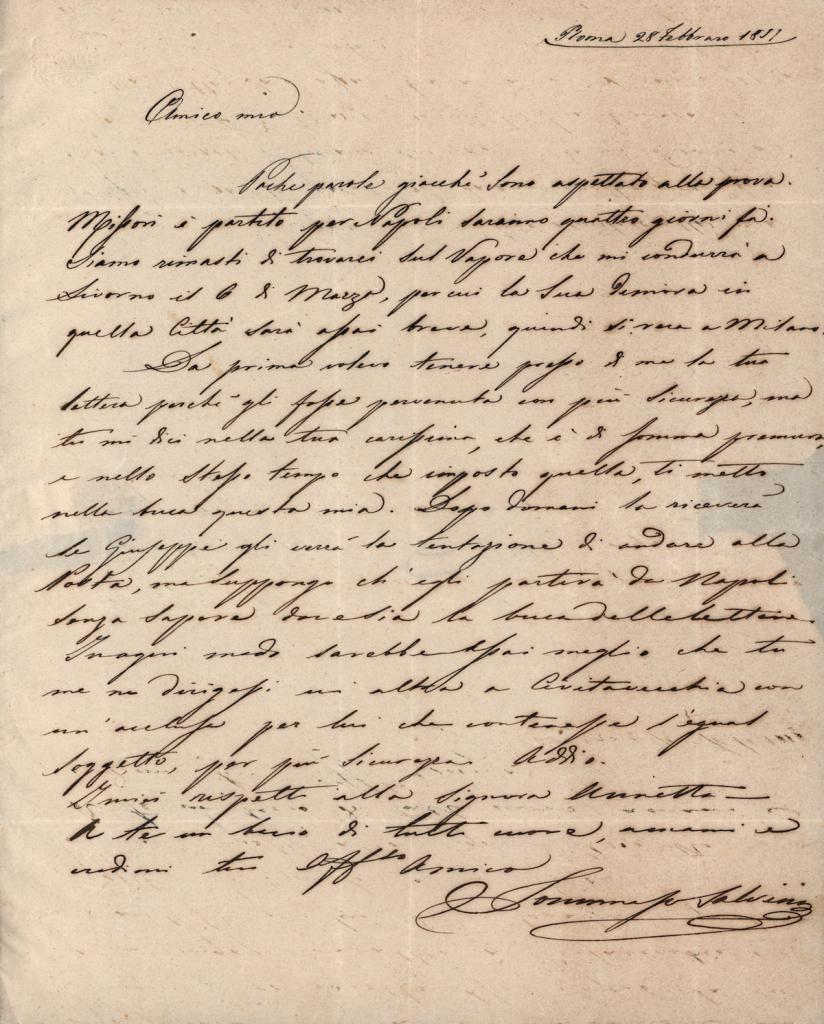 Roma 28 Febbraro 1851
Amico mio.
Poche parole giacchè sono aspettato alla prova.
Missori è partito per Napoli saranno quattro giorni fà.
Siamo rimasti di trovarci sul Vapore che mi condurrà a
Livorno il 6 di Marzo, per cui la sua dimora in
quella Città sarà assai breve, quindi si reca a Milano.
Da prima volevo tenere presso di me la tua
lettera perchè gli fosse pervenuta con più sicurezza, ma
tu mi dici nella tua carissima, che è di somma premura,
e nello stesso tempo che imposto quella, ti metto
nella buca questa mia. Dopo domani la riceverà
se Giuseppe gli verrà la tentazione di andare alla
Posta, ma suppongo ch'egli partirà da Napoli
senza sapere dove sia la buca delle lettere.
In ogni modo sarebbe assai meglio che tu
me ne dirigessi un altra a Civitavecchia con
un'acclusa per lui che contenesse l'egual
soggetto, per più sicurezza. Addio.
I miei rispetti alla Signora Annetta—
A te un bacio di tutto cuore, amami e
credimi tuo Aff.mo Amico
Tommaso Salvini